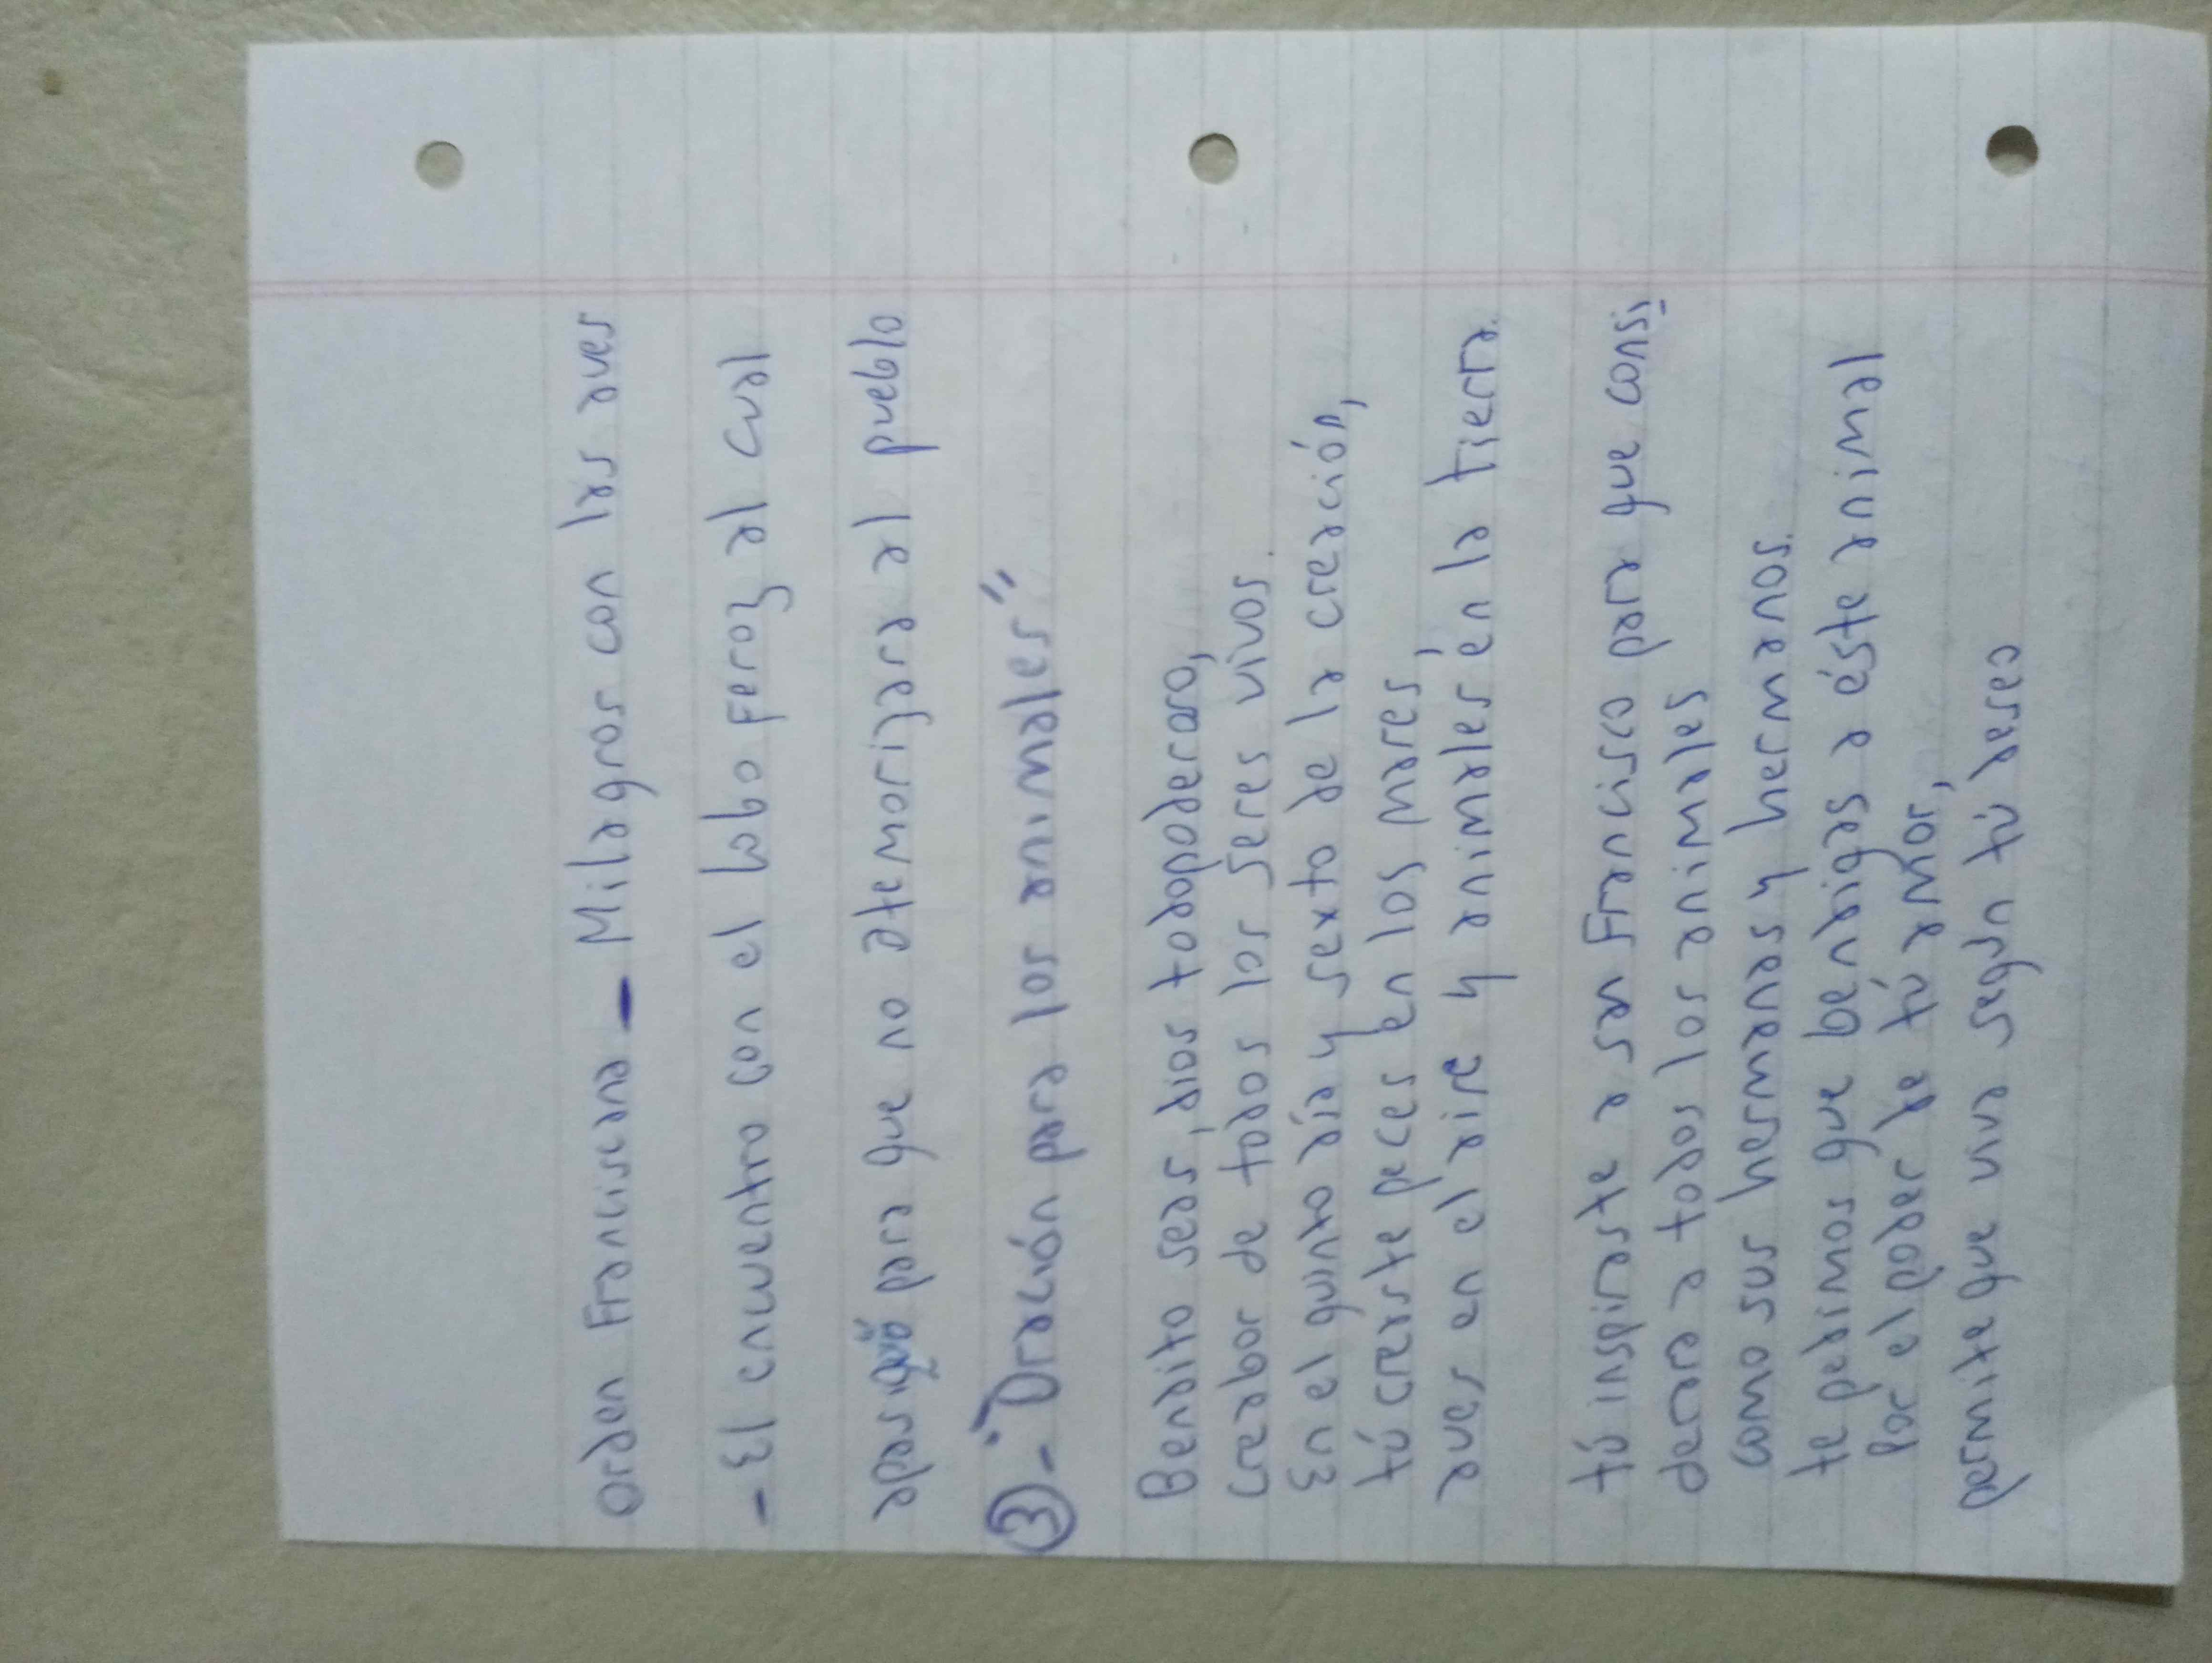 orden Franciscana - Milagros con las aves
- El encuentro con el lobo Feroz al cual
apasiguó para que no atemorizara al pueblo
③- "Oración para los animales"
Bendito seas, dios todopoderoso,
creador de todos los seres vivos.
En el quinto día y sexto de la creación,
tú creaste peces en los mares,
aves en el aire y animales en la tierra.
tú inspiraste a san Francisco para que consi
dera a todos los animales
como sus hermanas y hermanos.
te pedimos que bendigas a éste animal
por el poder de tú amor,
permite que viva segun tú deseo